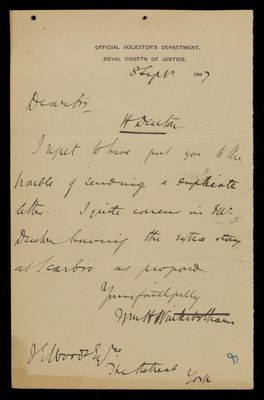 OFFICIAL SOLICITOR'S DEPARTMENT,
ROYAL COURTS OF JUSTICE.
8 Sept 1897
Dear Sir
H Denton
I regret to have put you to the
trouble of sending a duplicate
letter. I quite concur in Mr.
Denton having the extra stay
at Scarbro as proposed.
Yours faithfully
Wm H Winterbotham
The Retreat
York
8